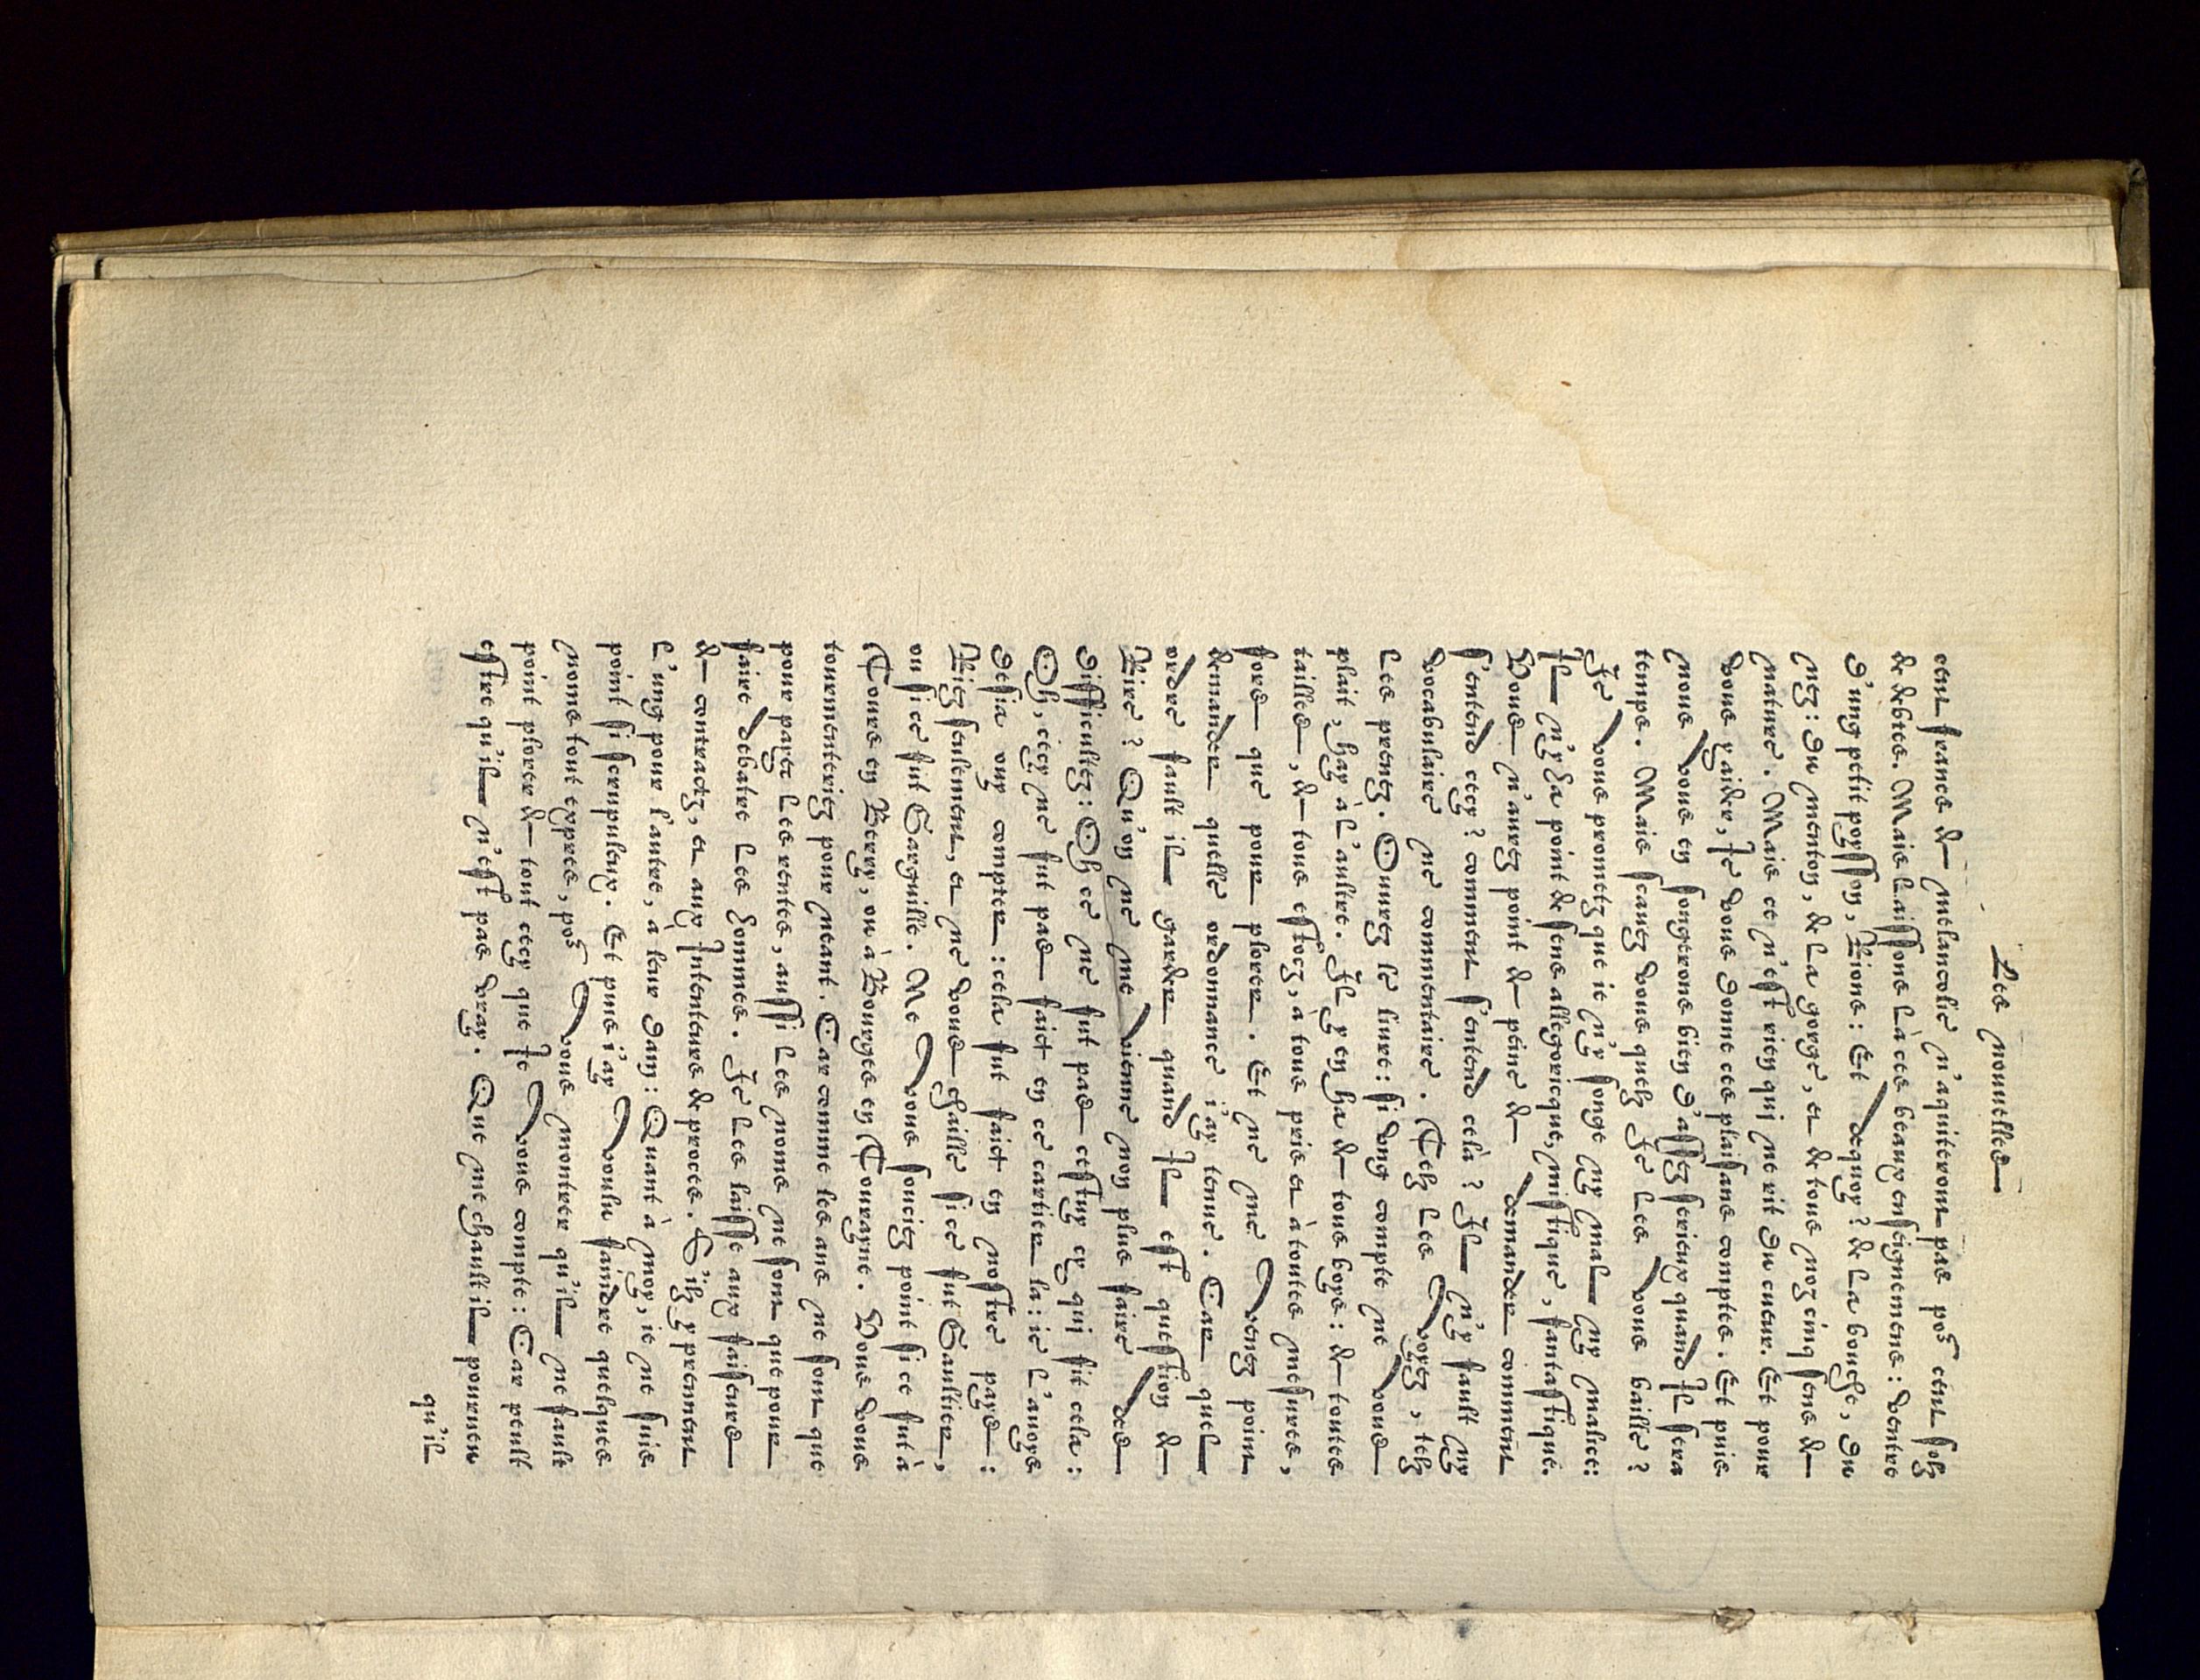 Les nouuelles
cent francs de melancolie n'aquiteront pas pour cent solz
de debtes. Mais laissons là ces beaux enseignemens: ventre
d'ung petit poysson, Rions: Et dequoy? de la bouche, du
nez: du menton, de la gorge, et de tous noz cinq sens de
nature. Mais ce n'est rien qui ne rit du cueur. Et pour
vous y aider, Je vous donne ces plaisans comptes. Et puis
nous vous en songerons bien d'assez serieux quand Il sera
temps. Mais scauez vous quelz Je les vous baille?
Je vous prometz que ie n'y songe ny mal ny malice:
Il n'y ha point de sens allegoricque, mistique, fantastique.
Vous n'aurez point de peine de demander comment
s'entend cecy? comment s'entend celà? Il n'y fault ny
vocabulaire ne commentaire. Telz les voyez, telz
les prenez. Ouurez le liure: si vng compte ne vous
plait, hay à l'aultre. Il y en ha de tous boys: de toutes
tailles, de tous estocz, à tous pris et à toutes mesures,
fors que pour plorer. Et ne me venez point
demander quelle ordonnance i'ay tenue. Car quel
ordre fault il garder quand Il est question de
Rire? Qu'on ne me vienne non plus faire des
difficultez: Oh ce ne fut pas cestuy cy qui fit cela:
Oh, cecy ne fut pas faict en ce cartier la: ie l'auoys
desia ouy compter: cela fut faict en nostre pays:
Riez seulement, et ne vous chaille si ce fut Gaultier,
ou si ce fut Garguille. Ne vous souciez point si ce fut à
Tours en Berry, ou à Bourges en Tourayne. Vous vous
tourmenteriez pour neant. Car comme les ans ne sont que
pour payer les rentes, aussi les noms ne sont que pour
faire debatre les hommes. Je les laisse aux faiseurs
de contractz, et aux Intenteurs de proces. S'ilz y prennent
l'ung pour l'autre, à leur dam: Quant à moy, ie ne suis
point si scrupuleux. Et puis i'ay voulu faindre quelques
noms tout expres, pour vous monstrer qu'il ne fault
point plorer de tout cecy que Je vous compte: Car peult
estre qu'il n'est pas vray. Que me chault il pourueu
qu'il